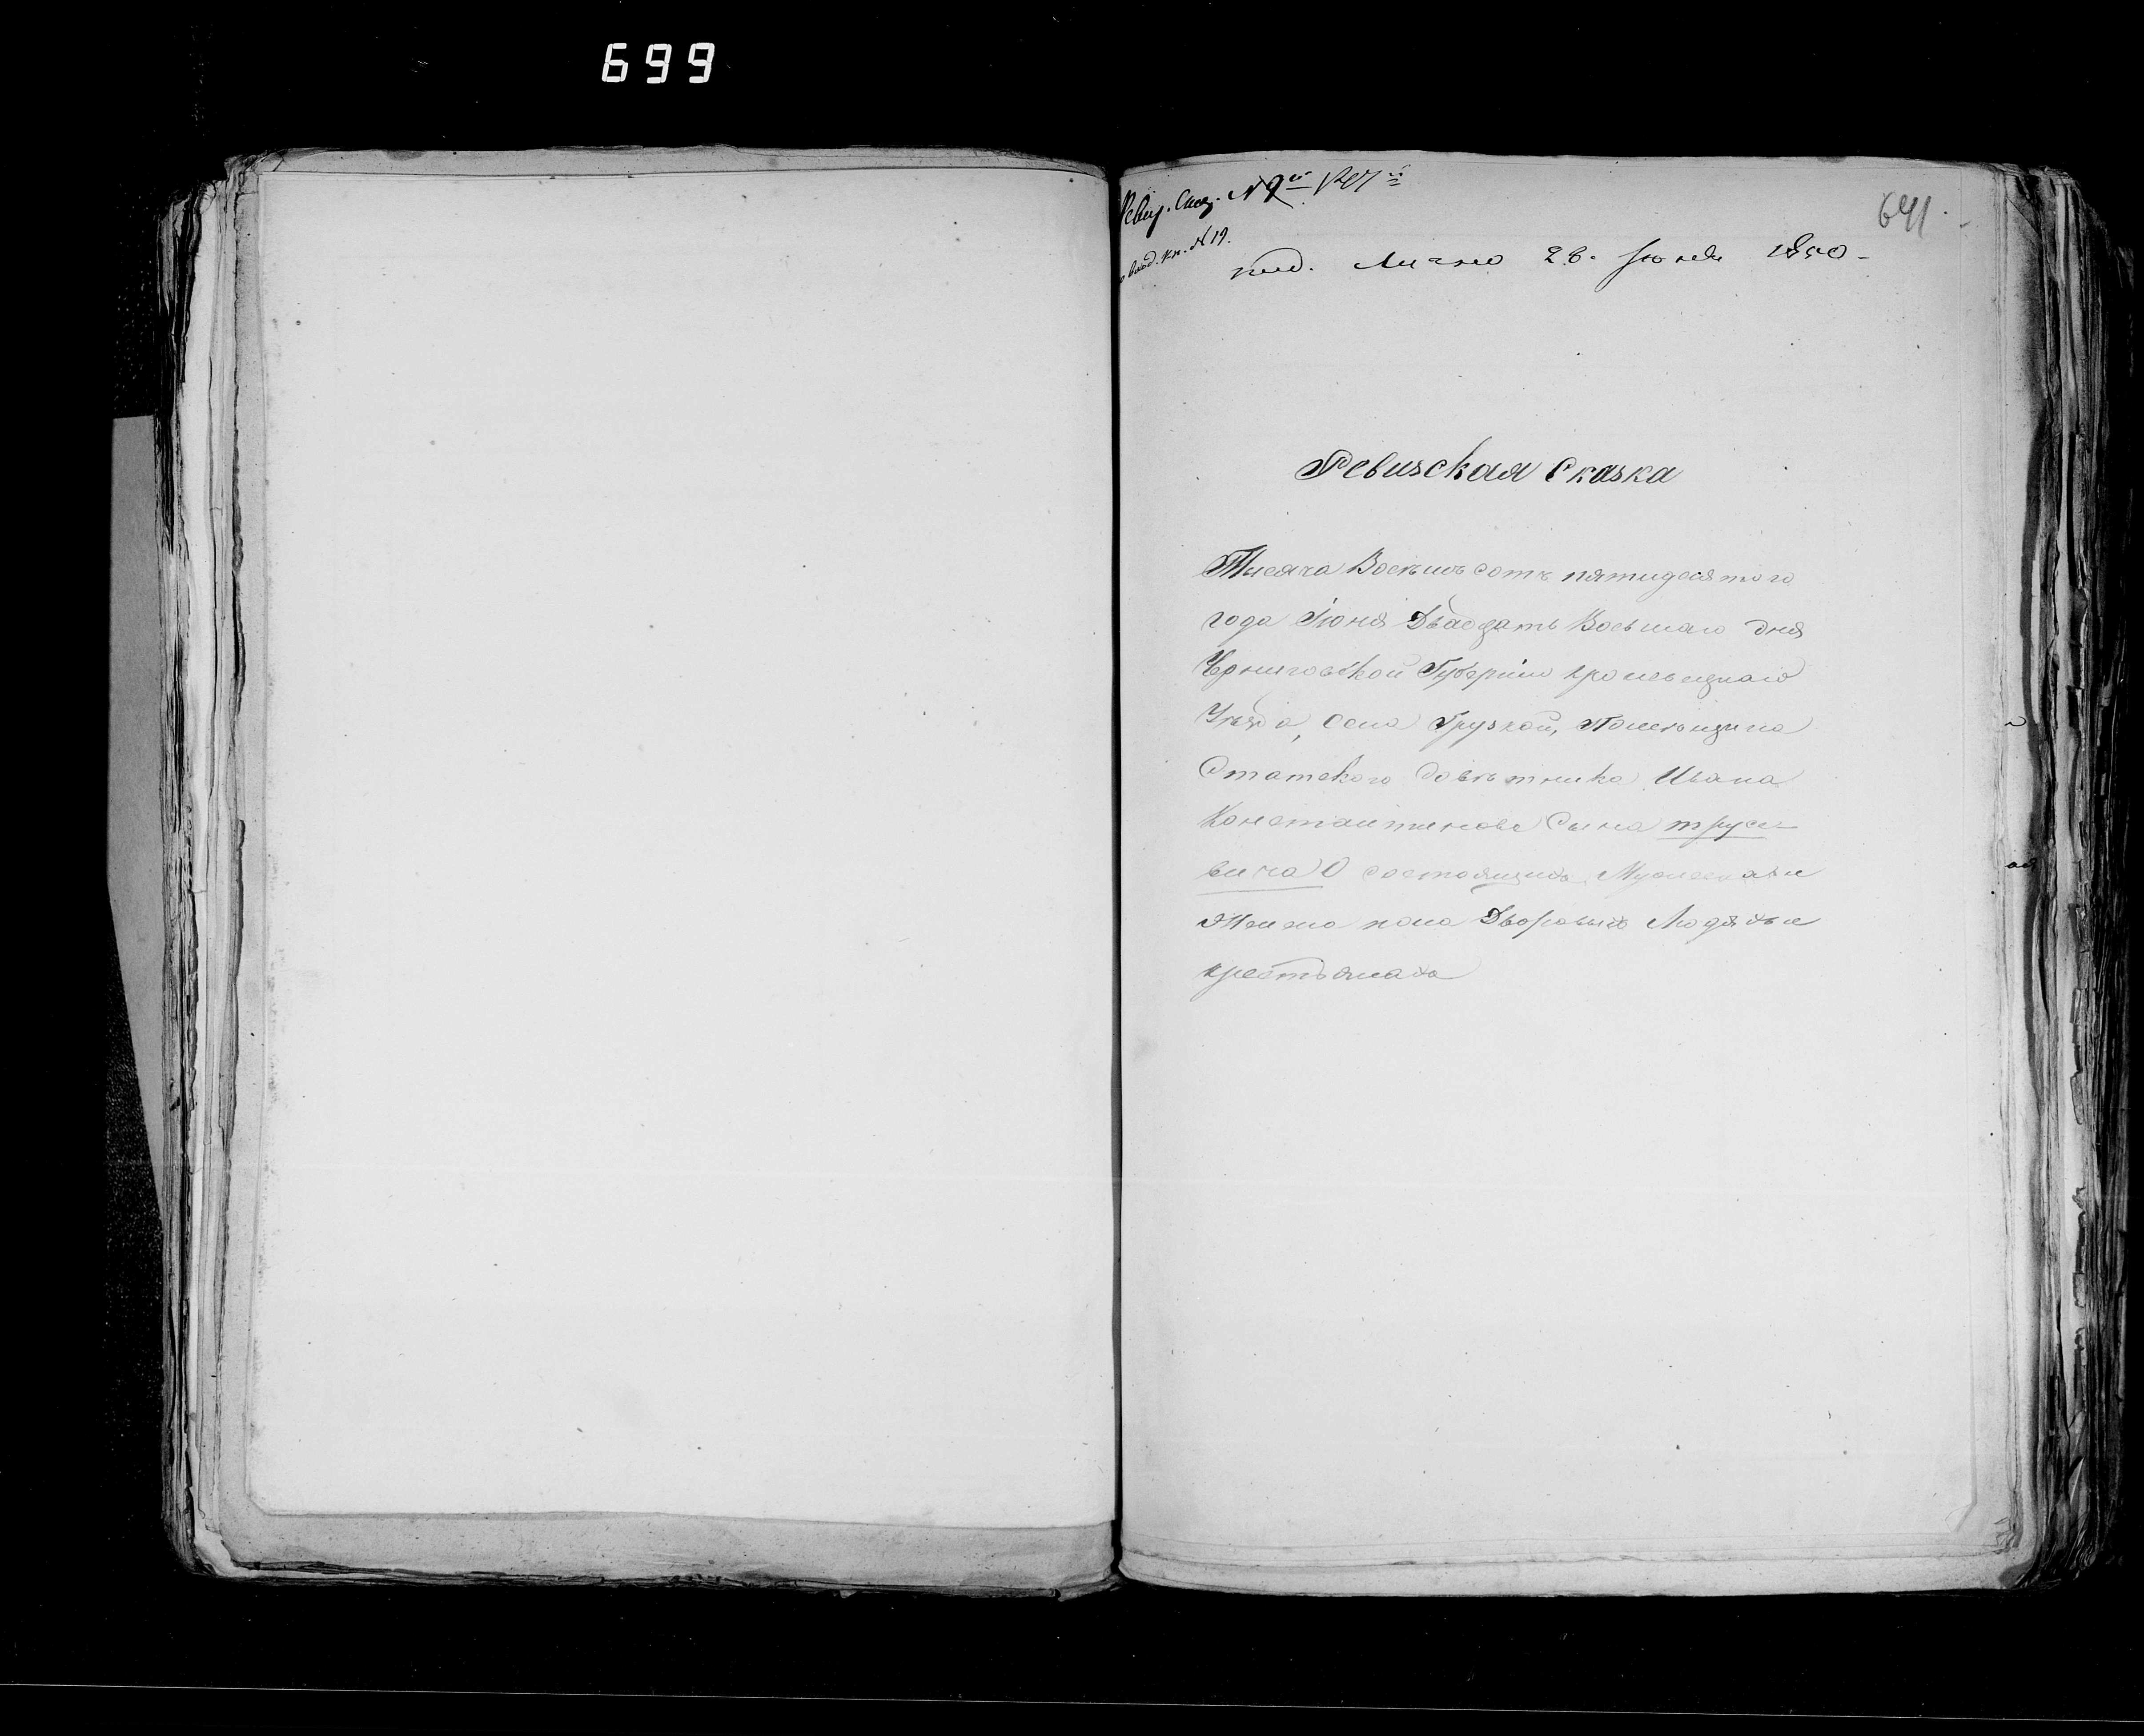 699
Ревиз. Сказ. №
641.
по вход. кн. № 19.
под. Лично 28. Июня 1850 -
Ревизская Сказка
Тысяча Восемь сотъ пятидесятого
года Июня Двадцать Восьмаго дня
Черниговской Губерніи Кролевецкаго
Уѣзда, Села Грузкой, Помѣщика
Статского Совѣтника Ивана
Константинова Сына Трусе-
вича О состоящихъ Мужеска и
Женска пола Дворовыхъ Людяхъ и
крестьянахъ